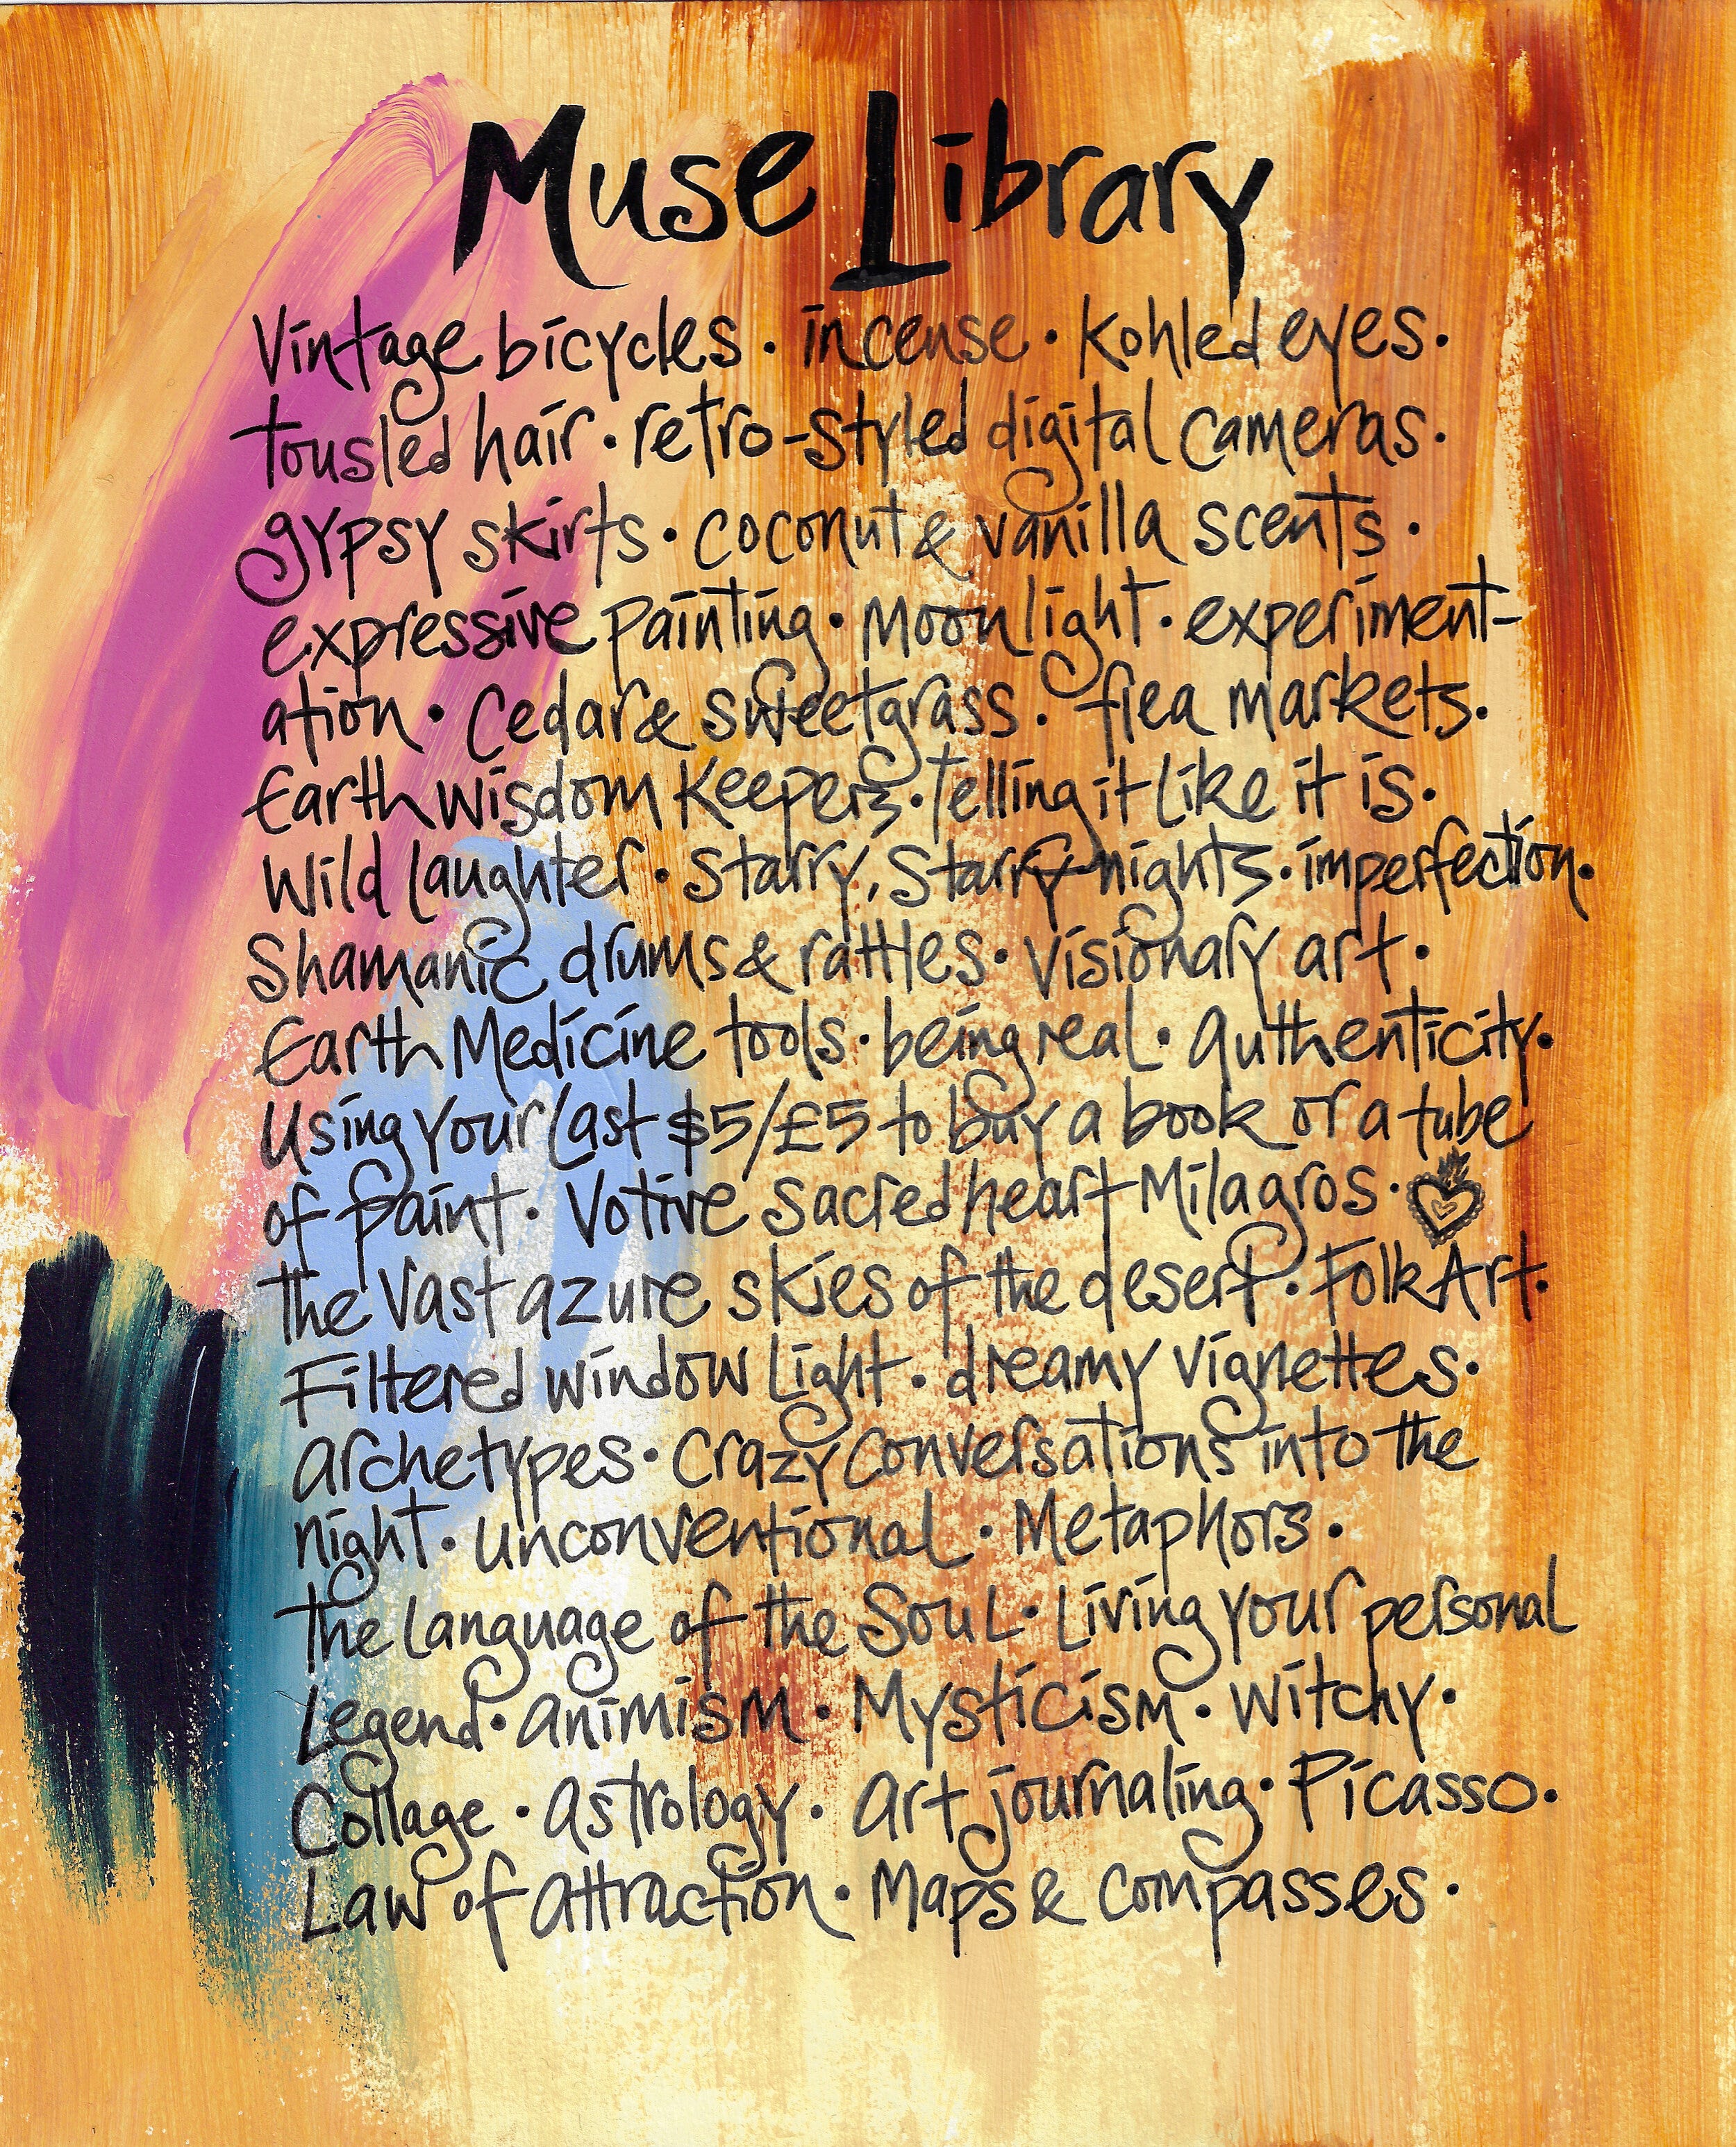 Muse Library
Vintage bicycles · incense · Kohled eyes ·
tousled hair · retro-styled digital cameras ·
gypsy skirts · coconut & vanilla scents ·
expressive painting · Moonlight · experiment-
ation · Cedar & sweetgrass · flea markets ·
Earth wisdom Keepers · Telling it like it is ·
Wild laughter · Starry, Starry nights · imperfection ·
Shamanic drums & rattles · Visionary art ·
Earth Medicine tools · being real · authenticity ·
Using your last $5/£5 to buy a book or a tube
of paint · Votive sacred heart Milagros ·
the Vast azure skies of the desert · Folk Art ·
Filtered window light · dreamy vignettes ·
archetypes · Crazy Conversations into the
night · unconventional · Metaphors ·
the language of the Soul · Living your personal
Legend · animism · Mysticism · Witchy ·
Collage · astrology · art journaling · Picasso ·
Law of attraction · Maps & compasses ·